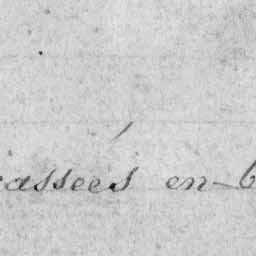 assées en